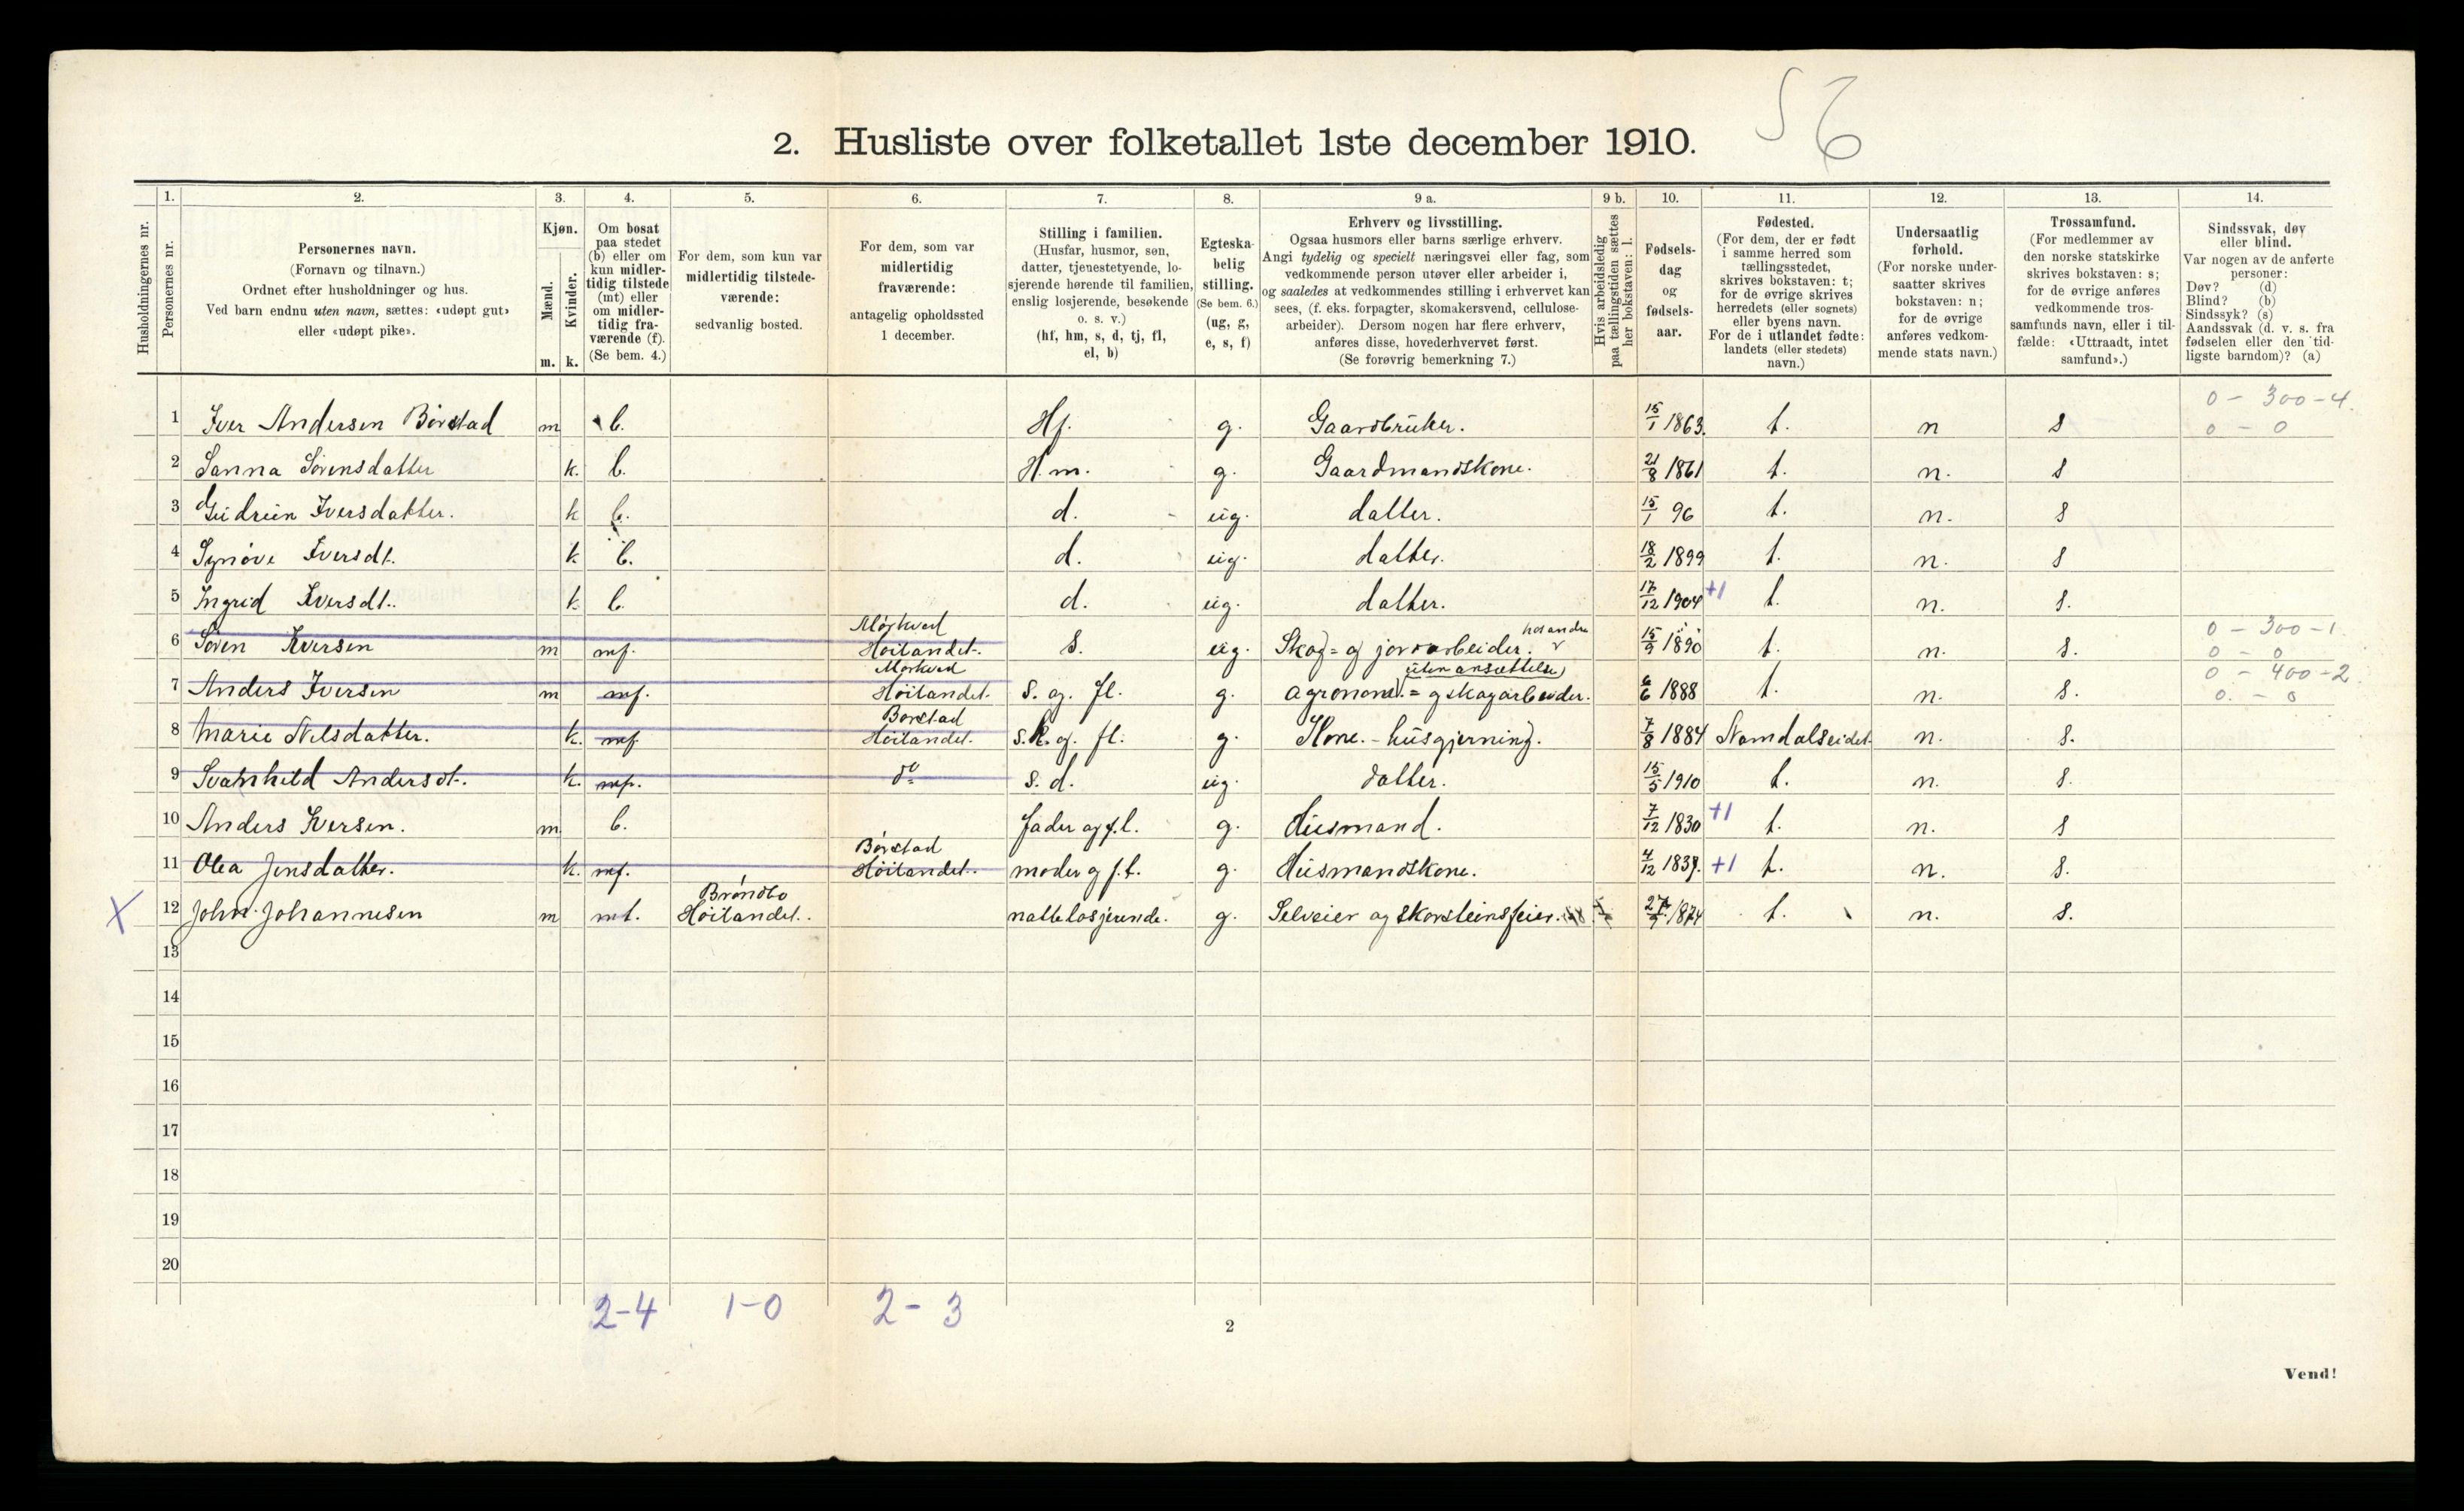 56
2. Husliste over folketallet 1ste december 1910.
Husholdningernes nr.
1.
Personernes nr.
2.
Personernes navn.
(Fornavn og tilnavn.)
Ordnet efter husholdninger og hus.
Ved barn endnu uten navn, sættes: «udøpt gut»
eller «udøpt pike».
3.
Kjøn.
Mænd.
Kvinder.
m. k.
4.
Om bosat
paa stedet
(b) eller om
kun midler-
tidig tilstede
(mt) eller
om midler-
tidig fra-
værende (f).
(Se bem. 4.)
5.
For dem, som kun var
midlertidig tilstede-
værende:
sedvanlig bosted.
6.
For dem, som var
midlertidig
fraværende:
antagelig opholdssted
1 december.
7.
Stilling i familien.
(Husfar, husmor, søn,
datter, tjenestetyende, lo-
sjerende hørende til familien,
enslig losjerende, besøkende
o. s. v.)
(hf, hm, s, d, tj, fl,
el, b)
8.
Egteska-
belig
stilling.
(Se bem. 6.)
(ug, g,
e, s, f)
9 a.
Erhverv og livsstilling.
Ogsaa husmors eller barns særlige erhverv.
Angi tydelig og specielt næringsvei eller fag, som
vedkommende person utøver eller arbeider i,
og saaledes at vedkommendes stilling i erhvervet kan
sees, (f. eks. forpagter, skomakersvend, cellulose-
arbeider). Dersom nogen har flere erhverv,
anføres disse, hovederhvervet først.
(Se forøvrig bemerkning 7.)
9 b.
Hvis arbeidsledig
paa tællingstiden sættes
her bokstaven: l.
10.
Fødsels-
dag
og
fødsels-
aar.
11.
Fødested.
(For dem, der er født
i samme herred som
tællingsstedet,
skrives bokstaven: t;
for de øvrige skrives
herredets (eller sognets)
eller byens navn.
For de i utlandet fødte:
landets (eller stedets)
navn.)
12.
Undersaatlig
forhold.
(For norske under-
saatter skrives
bokstaven: n;
for de øvrige
anføres vedkom-
mende stats navn.)
13.
Trossamfund.
(For medlemmer av
den norske statskirke
skrives bokstaven: s;
for de øvrige anføres
vedkommende tros-
samfunds navn, eller i til-
fælde: «Uttraadt, intet
samfund».)
14.
Sindssvak, døv
eller blind.
Var nogen av de anførte
personer:
Døv? (d)
Blind? (b)
Sindssyk? (s)
Aandssvak (d. v. s. fra
fødselen eller den tid-
ligste barndom)? (a)
0 - 300 - 4.
1 Iver Andersen Børstad m b. Hf. g. Gaardbruker. 15/1 1863. t. n s 0 - 0
2 Sanna Sørensdatter k. b. H.m. g. Gaardmandskone. 21/8 1861 t. n. s
3 Gudrun Iversdatter. k b. d. ug. datter. 15/1 96 t. n. s
4 Synøve Iversdt. k b. d. ug. datter. 18/2 1899 t. n. s
5 Ingrid Iversdt.. k. b. d. ug. datter. 17/12 1904 +1 t. n. s.
Mørkved hos andre 0 - 300 - 1
6 Søren Iversen m mf. Høilandet. s. ug. Skog= og jordarbeider. 15/9 1890 t. n. s. 0 - 0
Mørkved (uten ansættelse) 0 - 400 - 2.
7 Anders Iversen m mf. Høilandet. S. og. fl. g. agronom = g skogarbeider. 6/6 1888 t. n. s. 0. - 0
Børstad
8 Marie Nilsdatter. k. mf Høilandet. S.k. og. fl. g. Kone. - husgjerning. 7/8 1884 Namdalseidet. n. s.
9 Svanhild Andersdt. k. mf. do s. d. ug. datter. 15/5 1910 t. n. s.
10 Anders Iversen. m b. fader og f.l. g. Husmand. 7/12 1830 +1 t. n. s
Børstad
11 Olea Jensdatter. k. mf. Høilandet. moder g f.l. g. Husmandskone. 4/12 1837. +1 t. n. s.
Brøndbo
X 12 John Johannesen m mt. Høilandet. nattelosjerende. g. Selveier og skorsteinsfeier. 1874 t. n. s.
13
14
15
16
17
18
19
20
2-4 1-0 2-3
2
Vend!